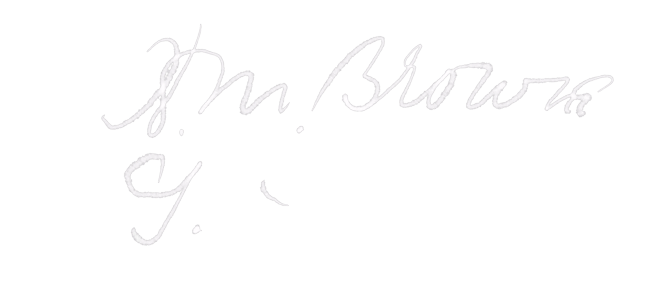 J. M. Brown
Y.